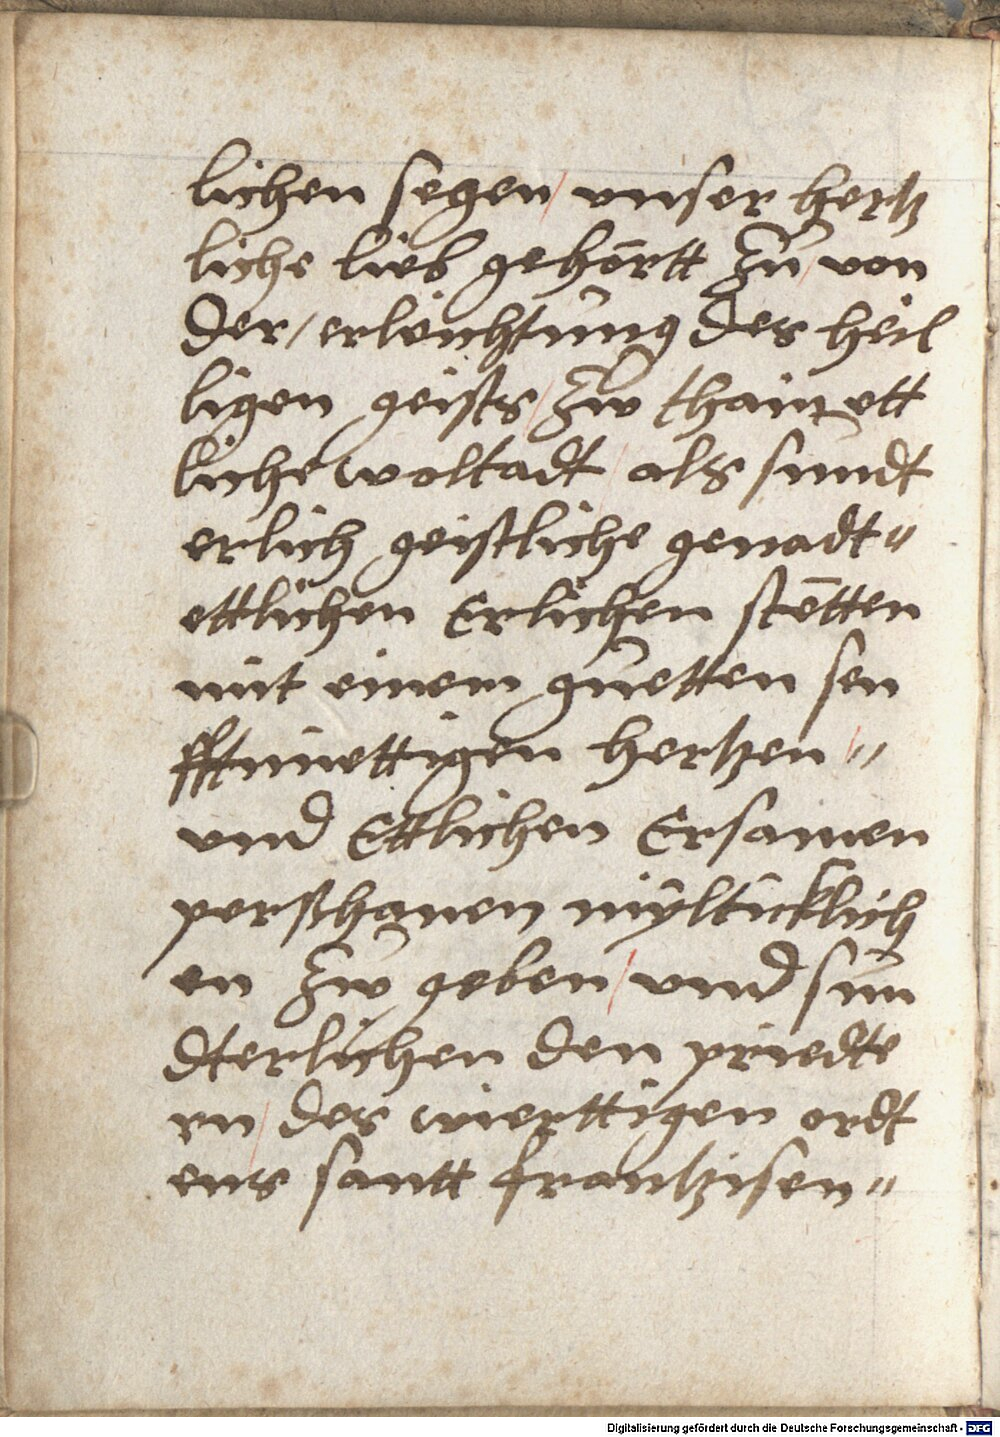 lichen segen / unser hertz
liche lieb gehörtt zů / von
der / erleüchtůng des heil
ligen geists / zw thain ett
liche woltadt / als sůndt
erlich geistliche genadt"
ettlichen Erlichen stëtten
mit einem gůetten sen
fftmůettigen hertzen / "
vnd Ettlichen Ersamen
perßhanen mÿlticklich
en zw geben / vnnd sůn
dterlichen den prüedte
rn / des wierttigen ordt
ens santt frantzisen"
Digitalisierung gefördert durch die Deutsche Forschungsgemeinschaft - DFG